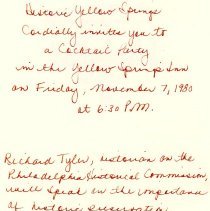 Historic Yellow Springs
Cordially invites you to
a Cocktail Party
in the Yellow Springs Inn
on Friday, November 7, 1980
at 6:30 P.M.
Richard Tyler, historian on the
Philadelphia Historical Commission,
will speak on the importance
of historic preservation